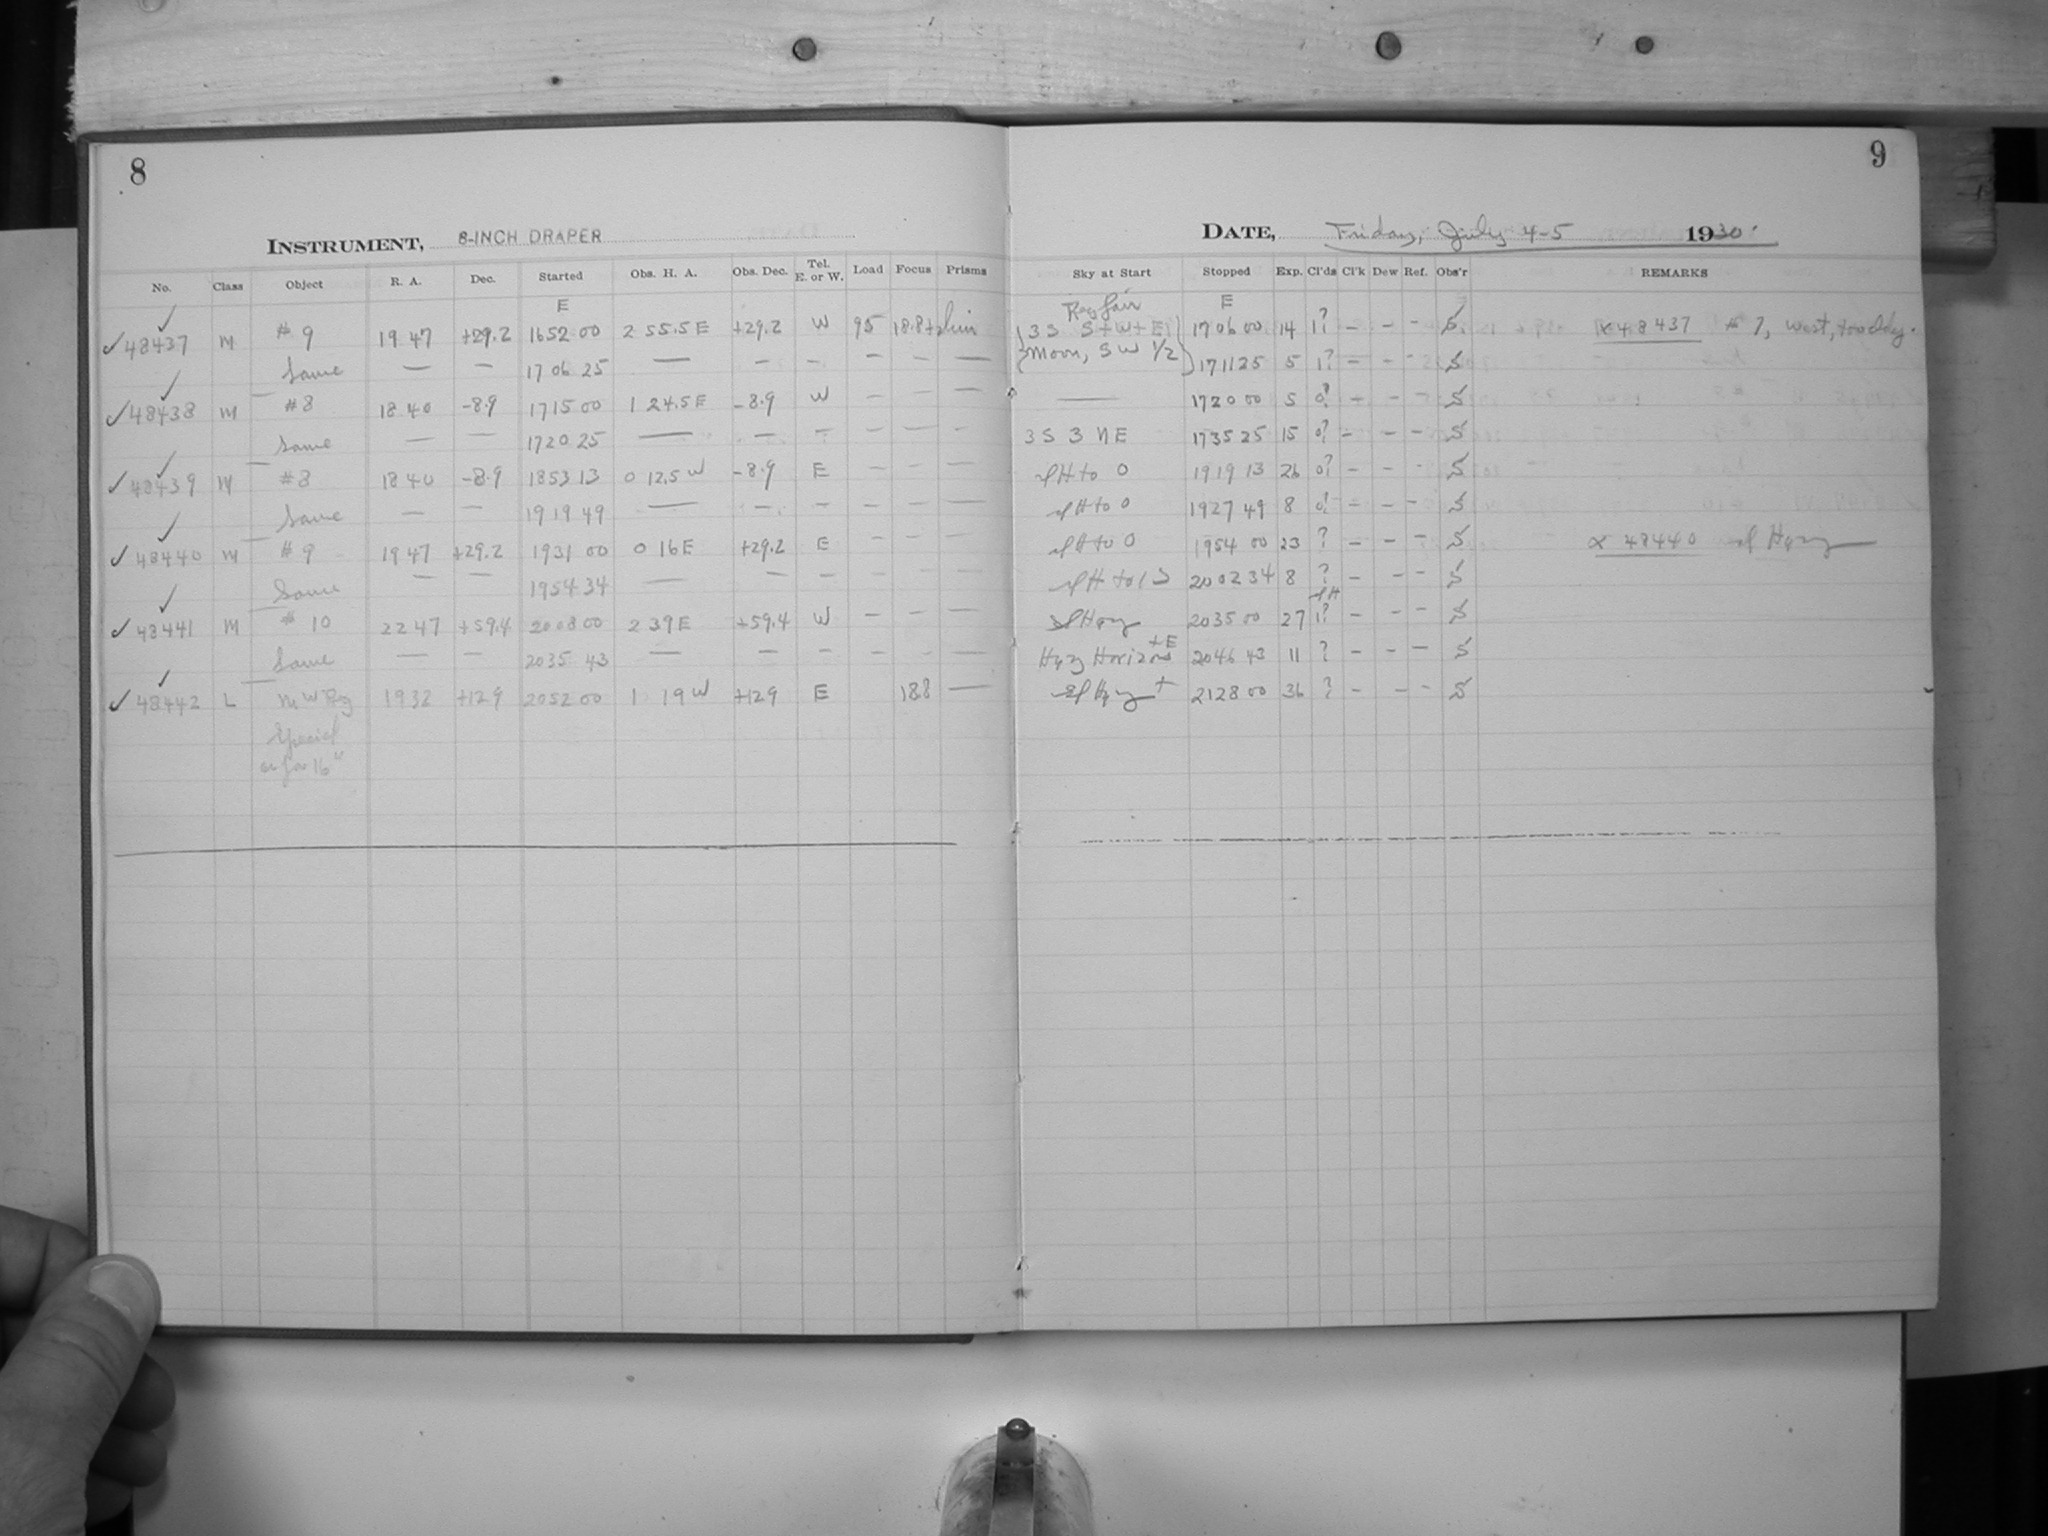 8
9
INSTRUMENT, 8-INCH DRAPER
DATE, Friday, July 4-5 1930
No. Class Object R. A. Dec. Started Obs. H. A. Obs. Dec. Tel. E. or W. Load Focus Prisms Sky at Start Stopped Exp. Cl'ds Cl'k Dew Ref. Obs'r REMARKS
E E
✓48437 M #9 19 47 +29.2 1652 00 2 55.5 E +29.2 W 95 18.8 {3 S S+W+E} 1706 00 14 1? — — — S 48437 # 7, west, too cldy.
Same — — 1706 25 — — — — — — {Moon, SW 1/2} 1711 25 5 1? — — — S
✓48438 M #8 18 40 -8.9 1715 00 1 24.5 E -8.9 W — — — — 1720 00 5 0? — — — S
Same — — 1720 25 — — — — — — 3 S 3 NE 1735 25 15 0? — — — S
✓48439 M #8 18 40 -8.9 1853 13 0 12.5 W -8.9 E — — — sl H to 0 1919 13 26 0? — — — S
Same — — 1919 49 — — — — — — sl H to 0 1927 49 8 0? — — — S
✓48440 M #9 19 47 +29.2 1931 00 0 16 E +29.2 E — — — sl H to 0 1954 00 23 ? — — — S 48440 sl Hazy
Same — — 1954 34 — — — — — — sl H to 1 S 2002 34 8 ? — — — S
✓48441 M #10 22 47 +59.4 2008 00 2 39 E +59.4 W — — — sl Hazy 2035 00 27 sl H 1? — — — S
Same — — 2035 43 — — — — — — Hazy Horizons +E 2046 43 11 ? — — — S
✓48442 L M W Reg 19 32 +12.9 2052 00 1 19 W +12.9 E 18.8 — sl Hazy + 2128 00 36 ? — — — S
Special
as for 16"